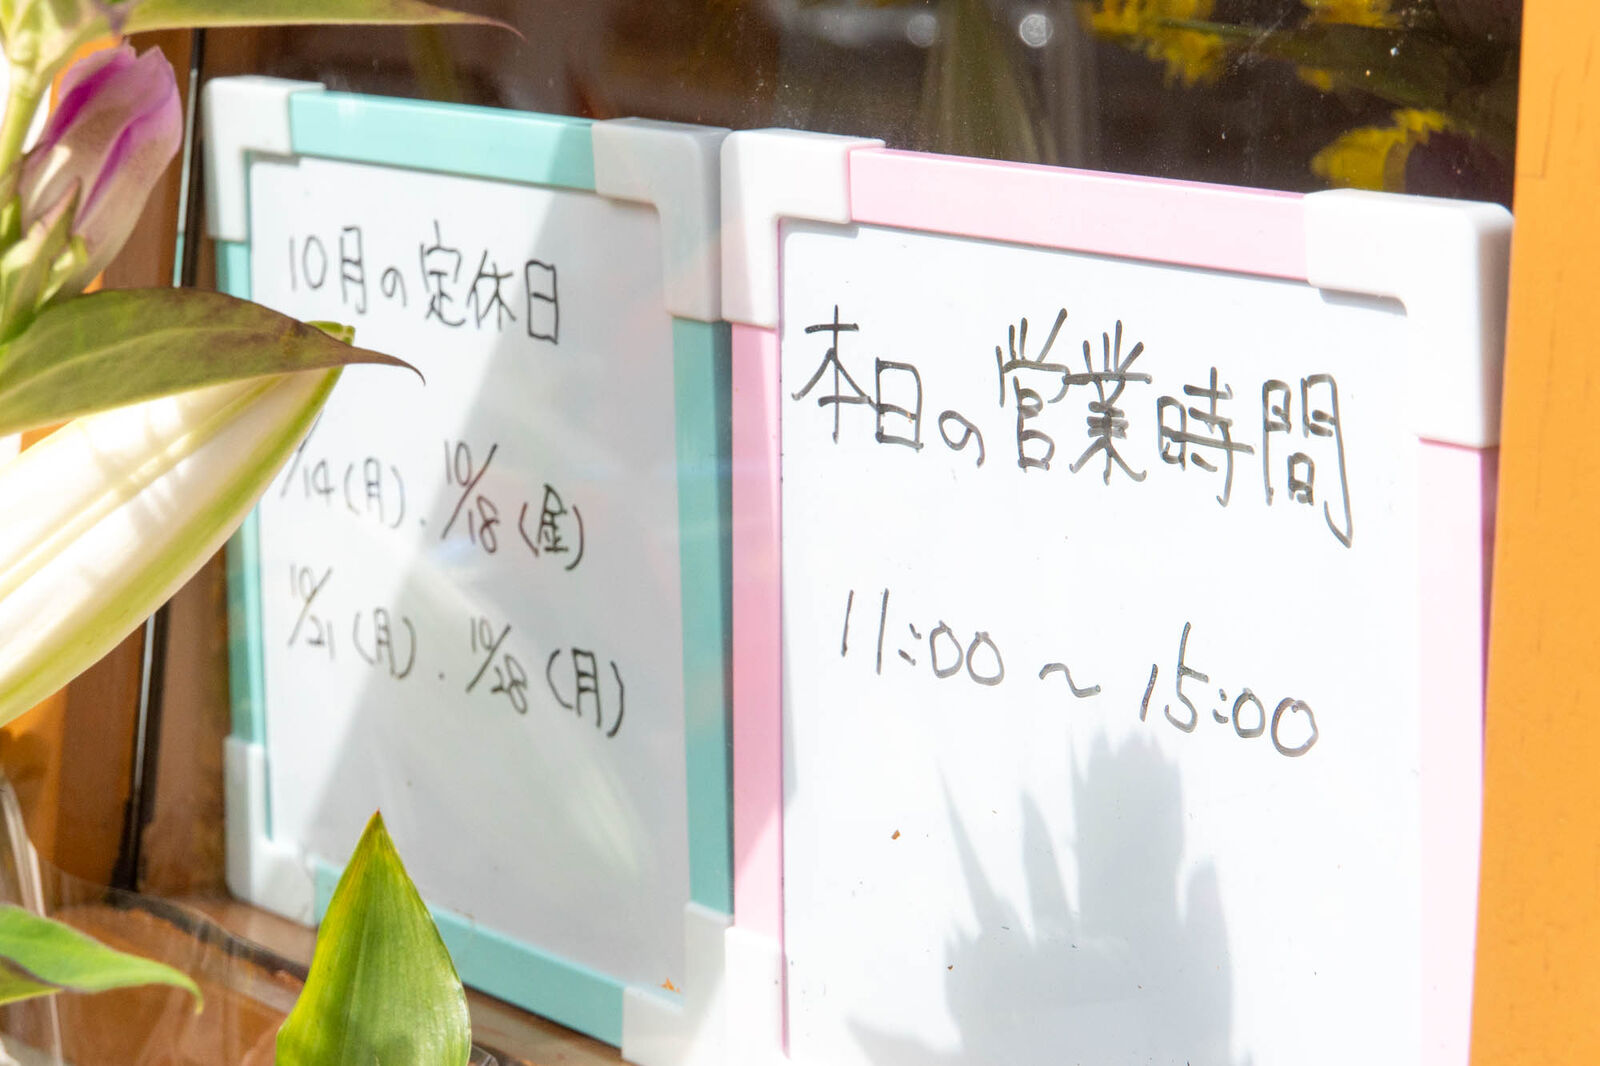 10月の定休日
/14(月)．10/18(金)
10/21(月)．10/28(月)
本日の営業時間
11:00～15:00